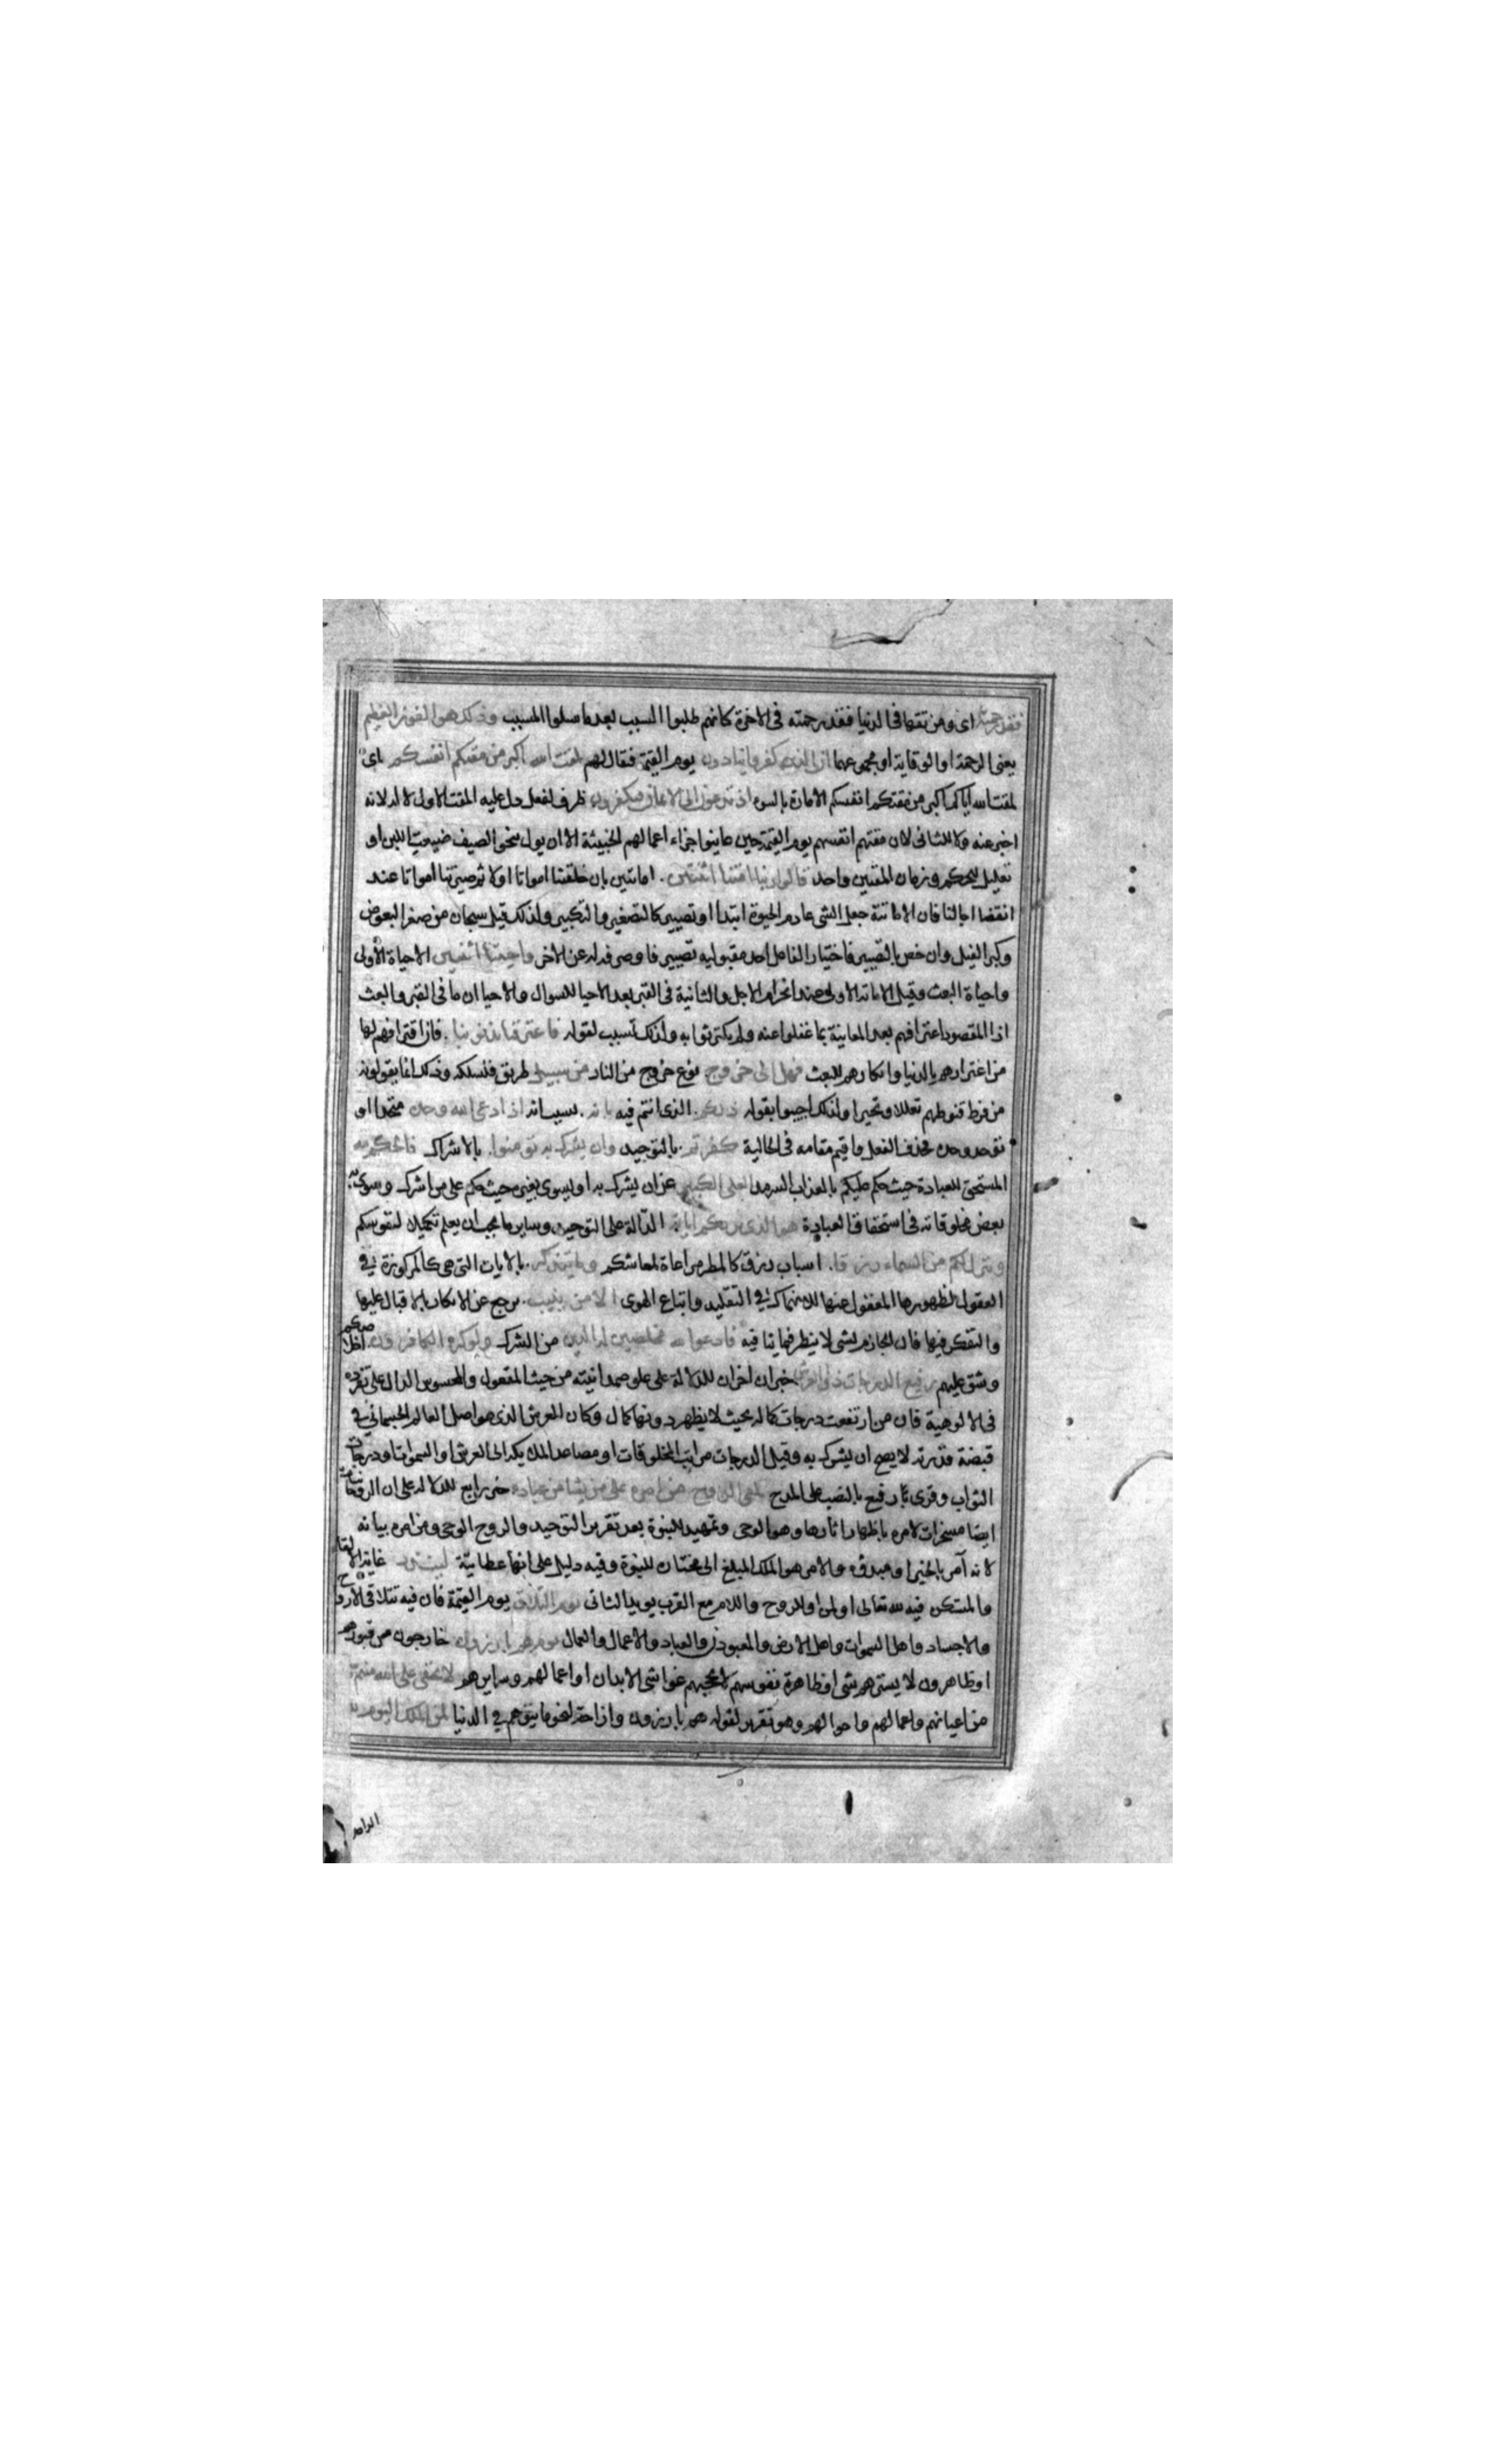 فقد رحمته اى ومن تقها فى الدنيا فقد رحمته فى الاخرة كانهم طلبوا السبب بعد ما سلوا المسبب وذلك هو الفوز العظيم
يعنى الرحمة او الوقاية او مجموعهما ان الذين كفروا ينادون يوم القيمة فقال لهم لمقت الله اكبر من مقتكم انفسكم اى
لمقت الله اياكم اكبر من مقتكم انفسكم الامارة بالسوء اذ تدعون الى الايمان فتكفرون ظرف لفعل دل عليه المقت الاول لا له لانه
اخبر عنه ولا للثانى لان مقتهم انفسهم يوم القيمة حين عاينوا جزاء اعمالهم الخبيثة الا ان يول بنحو الصيف ضيعت اللبن او
تعليل للحكم وزمان المقتين واحد قالوا ربنا امتنا اثنتين . اماتتين بان خلقتنا امواتا اولا ثم صيرتنا امواتا عند
انقضا اجالنا فان الاماتة جعل الشى عادم الحيوة ابتدا او تصيير كالتصغير والتكبير ولذلك قيل سبحان من صغر البعوض
وكبر الفيل وان خص بالتصيير فاختيار الفاعل احد مقبوليه تصيير فا وصرف له عن الاخر واحييتنا اثنتين الاحياة الاولى
واحياة البعث وقيل الاماتة الاولى عند انخرام الاجل والثانية فى القبر بعد الاحيا للسوال والاحيا ان ما فى القبر والبعث
اذا المقصود اعترافهم بعد المعاينة بما غفلوا عنه ولم يكترثوا به ولذلك تسبب لقوله فاعترفنا بذنوبنا . فان اقترافهم لها
من اغترارهم بالدنيا وانكارهم للبعث فهل الى خروج نوع خروج من النار من سبيل طريق فنسلكه وذلك انما يقولونه
من فرط قنوطهم تعللا وتحيرا ولذلك اجيبوا بقوله ذلكم . الذى انتم فيه بانه . بسبب انه اذا دعى الله وحده متحدا او
توحد وحده فحذف الفعل واقيم مقامه فى الحالية كفرتم . بالتوحيد وان يشرك به تومنوا . بالاشراك فالحكم لله
المستحق للعبادة حيث حكم عليكم بالعذاب السرمد العلى الكبير عن ان يشرك به او يسوى بغيره حيث حكم على من اشرك وسوى به
بعض مخلوقاته فى استحقاق العبادة هو الذى يريكم اياته . الدالة على التوحيد وساير ما يجب ان يعلم تكميلا لنفوسكم
وينزل لكم من السماء رزقا . اسباب رزق كالمطر مراعاة لمعاشكم وما يتذكر . بالايات التى هى كالمركوزة فى
العقول لظهورها المغفول عنها للانهماك فى التقليد واتباع الهوى الا من ينيب . يرجع عن الانكار بالاقبال عليها
والتفكر فيها فان الجازم بشى لا ينظر فيما ينافيه فادعوا الله مخلصين له الدين من الشرك ولو كره الكافرون اخلاصكم
وشق عليهم رفيع الدرجات ذو العرش خبران اخران للدلالة على علو صمدانيته من حيث المعقول والمحسوس الدال على تفرده
فى الالوهية فان من ارتفعت درجات كماله بحيث لا يظهر دونها كمال وكان العرش الذى هو اصل العالم الجسمانى فى
قبضة قدرته لا يصح ان يشرك به وقيل الدرجات مراتب المخلوقات او مصاعد الملايكة الى العرش او السموات او درجات
الثواب وقرى رفيع بالنصب على المدح يلقى الروح من امره على من يشا من عباده خبر رابع للدلالة على ان الروحانيات
ايضا مسخرات لامره باظهار اثارها وهو الوحى وتمهيد للنبوة بعد تقرير التوحيد والروح الوحى ومن امره بيانه
لانه آمر بالخير او مبدؤه والامر هو الملك المبلغ الى مختار للنبوة وفيه دليل على انها عطائية لينذر غاية الالقا
والمستكن فيه لله تعالى او لمن او للروح واللام مع القرب يويد الثانى يوم التلاق يوم القيمة فان فيه تتلاقى الارواح
والاجساد واهل السموات واهل الارض والمعبودون والعباد والاعمال والعمال يوم هم بارزون خارجون من قبورهم
او ظاهرون لا يسترهم شى او ظاهرة نفوسهم لا يحجبهم غواشى الابدان او اعمالهم وسرايرهم لا يخفى على الله منهم شى
من اعيانهم واعمالهم واحوالهم وهو تقرير لقوله هم بارزون وازاحة لنحو ما يتوهم فى الدنيا لمن الملك اليوم لله
الواحد